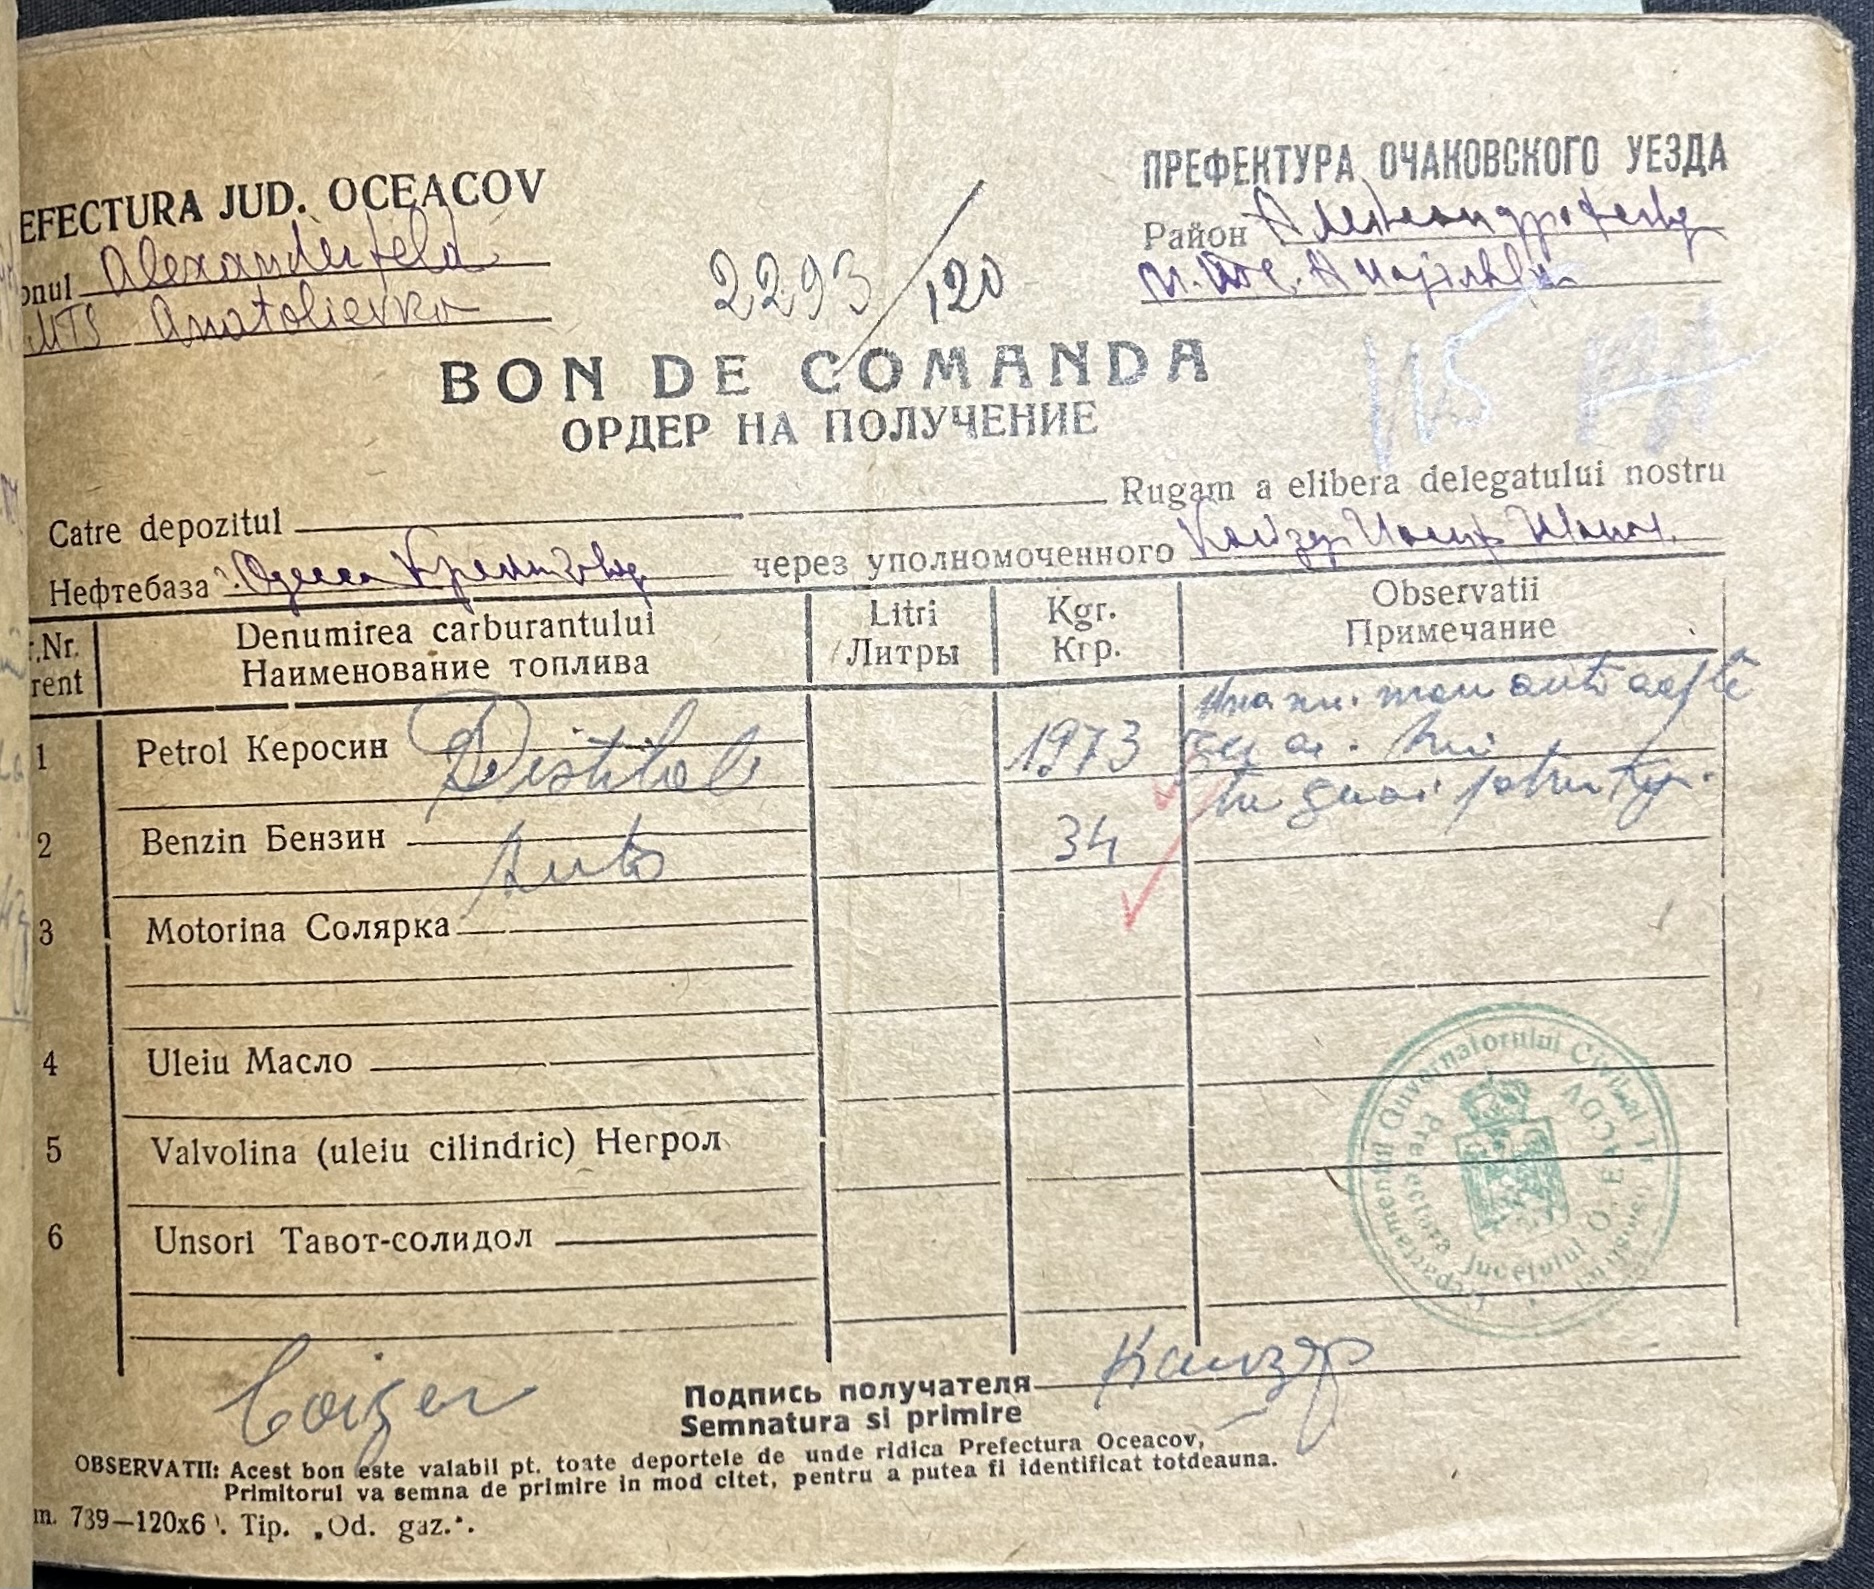 EFECTURA JUD. OCEACOV
onul Alexanderfeld
MTS Anatolievka
2293/120
ПРЕФЕКТУРА ОЧАКОВСКОГО УЕЗДА
Район
BON DE COMANDA
ОРДЕР НА ПОЛУЧЕНИЕ
115
Catre depozitul Rugam a elibera delegatului nostru
Нефтебаза г. Одесса через уполномоченного Кайзер Иосиф
.Nr. Denumirea carburantului Litri Kgr. Observatii
rent Наименование топлива Литры Кгр. Примечание
1 Petrol Керосин Distilat 1973
2 Benzin Бензин Auto 34
3 Motorina Солярка
4 Uleiu Масло
5 Valvolina (uleiu cilindric) Негрол
6 Unsori Тавот-солидол
Guvernatorului Civil al
Prefectura Judetului OCEACOV
Coizer
Подпись получателя Кайзер
Semnatura si primire
OBSERVATII: Acest bon este valabil pt. toate deportele de unde ridica Prefectura Oceacov,
Primitorul va semna de primire in mod citet, pentru a putea fi identificat totdeauna.
m. 739—120x6 . Tip. „Od. gaz.".